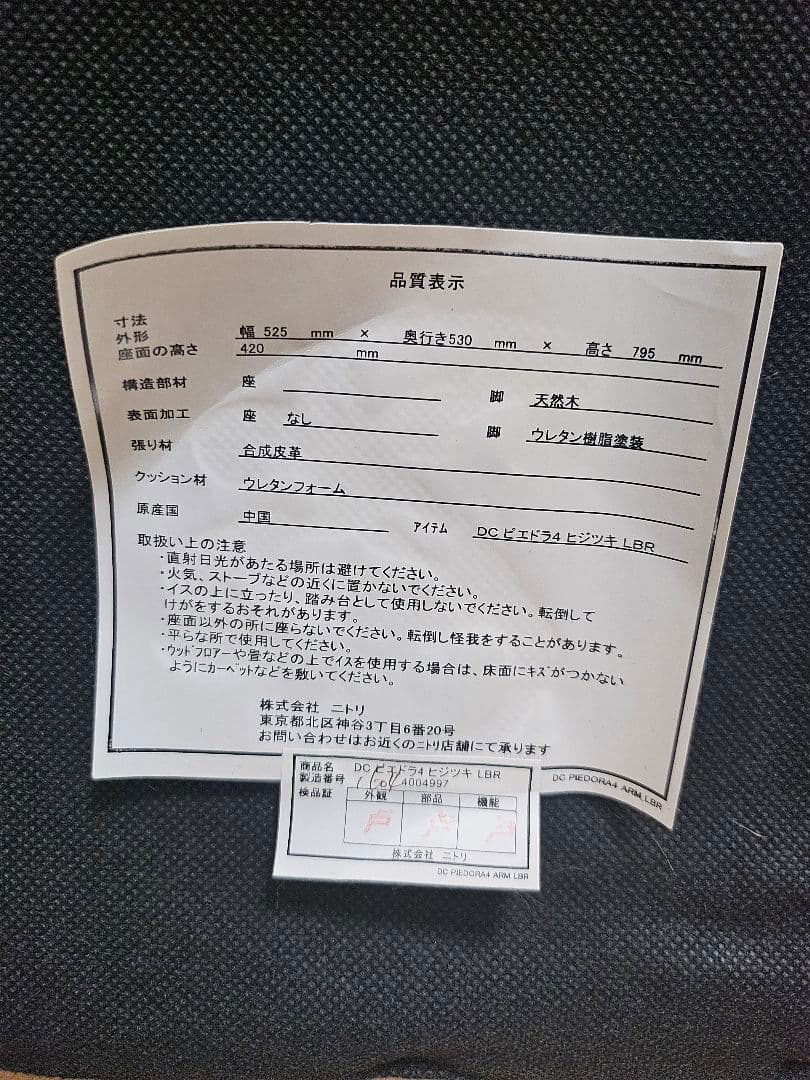 品質表示
寸法
外形 幅 525 mm × 奥行き530 mm × 高さ 795 mm
座面の高さ 420 mm
構造部材 座 脚 天然木
表面加工 座 なし 脚 ウレタン樹脂塗装
張り材 合成皮革
クッション材 ウレタンフォーム
原産国 中国 アイテム DC ピエドラ4 ヒジツキ LBR
取扱い上の注意
・直射日光があたる場所は避けてください。
・火気、ストーブなどの近くに置かないでください。
・イスの上に立ったり、踏み台として使用しないでください。転倒して
けがをするおそれがあります。
・座面以外の所に座らないでください。転倒し怪我をすることがあります。
・平らな所で使用してください。
・ウッドフロアーや畳などの上でイスを使用する場合は、床面にキズがつかない
ようにカーペットなどを敷いてください。
株式会社 ニトリ
東京都北区神谷3丁目6番20号
お問い合わせはお近くのニトリ店舗にて承ります
DC PIEDORA4 ARM LBR
商品名 DC ピエドラ4 ヒジツキ LBR
製造番号 4004997
検品証 外観 部品 機能
株式会社 ニトリ
DC PIEDORA4 ARM LBR